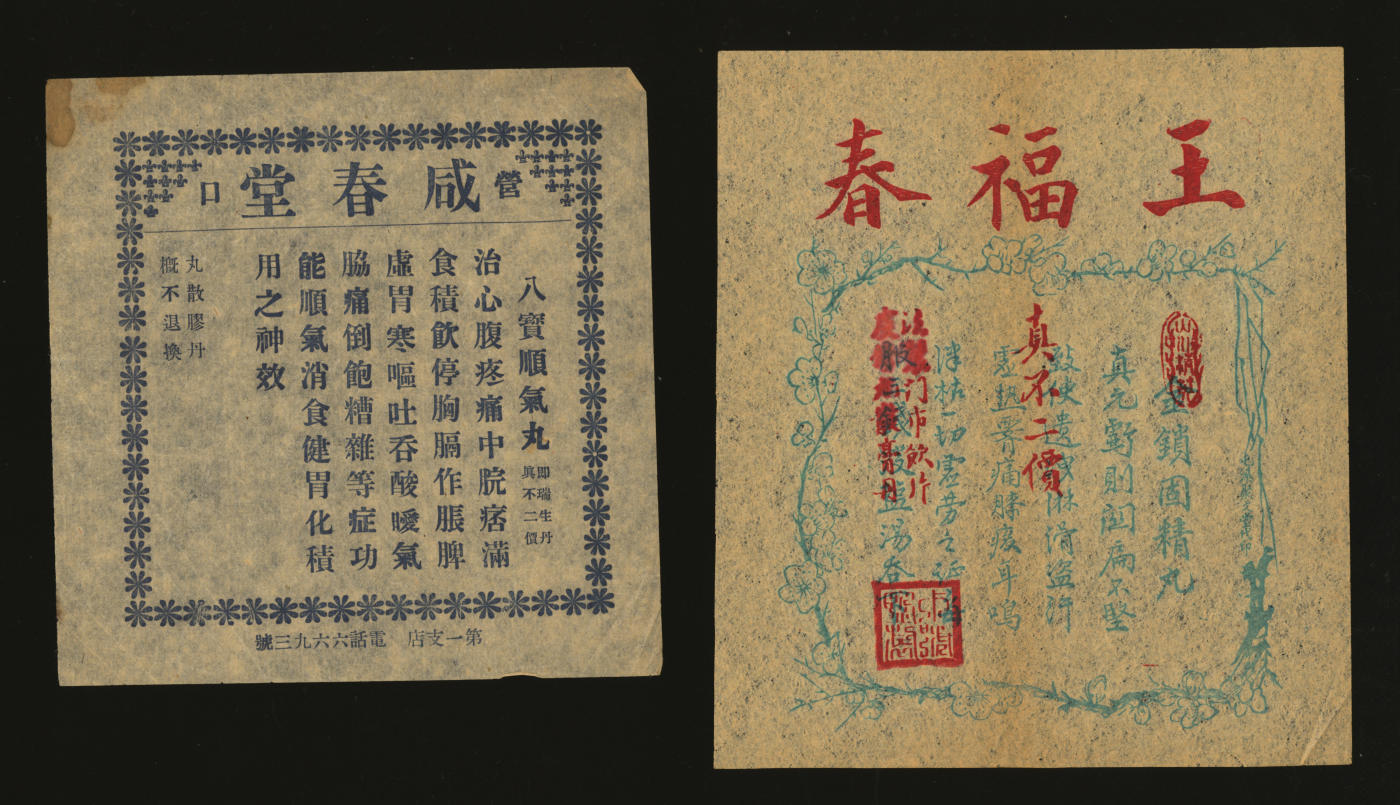 營口 咸春堂
八寶順氣丸 即瑞生丹 真不二價
治心腹疼痛中脘痞滿
食積飲停胸膈作脹脾
虛胃寒嘔吐吞酸噯氣
脇痛倒飽糟雜等症功
能順氣消食健胃化積
用之神效
丸散膠丹
概不退換
第一支店 電話六六九三號
王福春
金鎖固精丸
真元虧則関扃不堅
致使遺淋滑盜汗
虛熱骨痛膝痠耳鳴
津枯一切虛勞之征
服三錢盐湯
真不二價
法門市飲片
丹